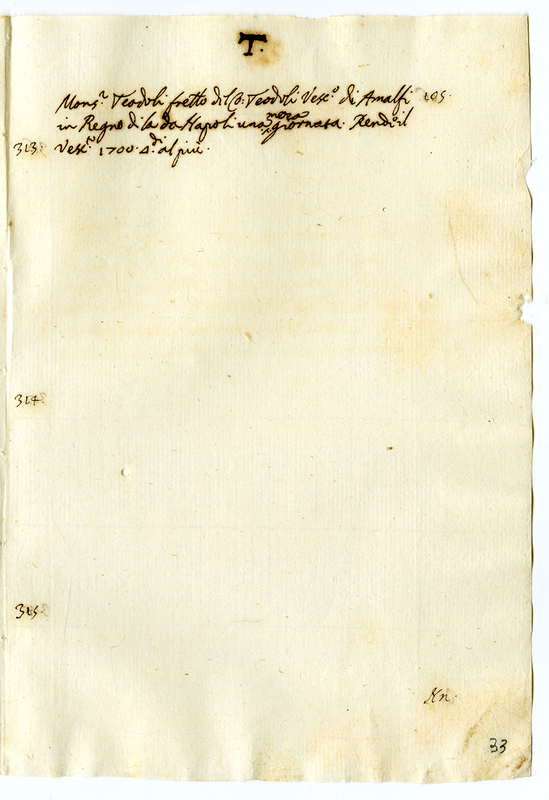 T.
Mons.r Teodoli fretto di Teodoli Vesc.o di Amalfi 105.
in Regno di la da Napoli una mezza giornata. Rende il
313. Vesc.to 1700. d.di al più.
314.
315.
Nn.
33